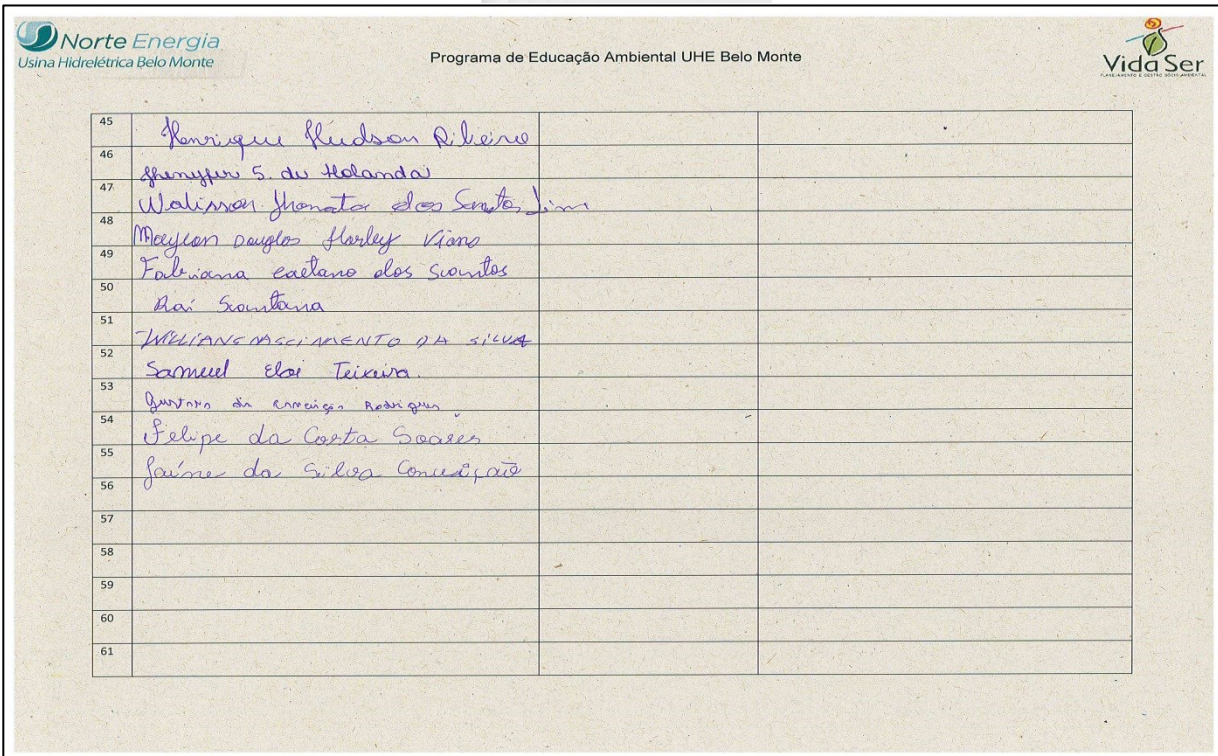 Norte Energia
Usina Hidrelétrica Belo Monte
Programa de Educação Ambiental UHE Belo Monte
Vida Ser
PLANEJAMENTO E GESTÃO SÓCIO-AMBIENTAL
45 Henrique Hudson Ribeiro
46 Jhenyfer S. de Holanda
47 Walisson Jhonata dos Santos Lima
48 Maycon Douglas Harley Viana
49 Fabriana Caetano dos Santos
50 Rai Santana
51 WILLIANS NASCIMENTO DA SILVA
52 Samuel Eloi Teixeira.
53 Gustavo da Conceição Rodrigues
54 Felipe da Costa Soares
55 Jaíne da Silva Conceição
56
57
58
59
60
61